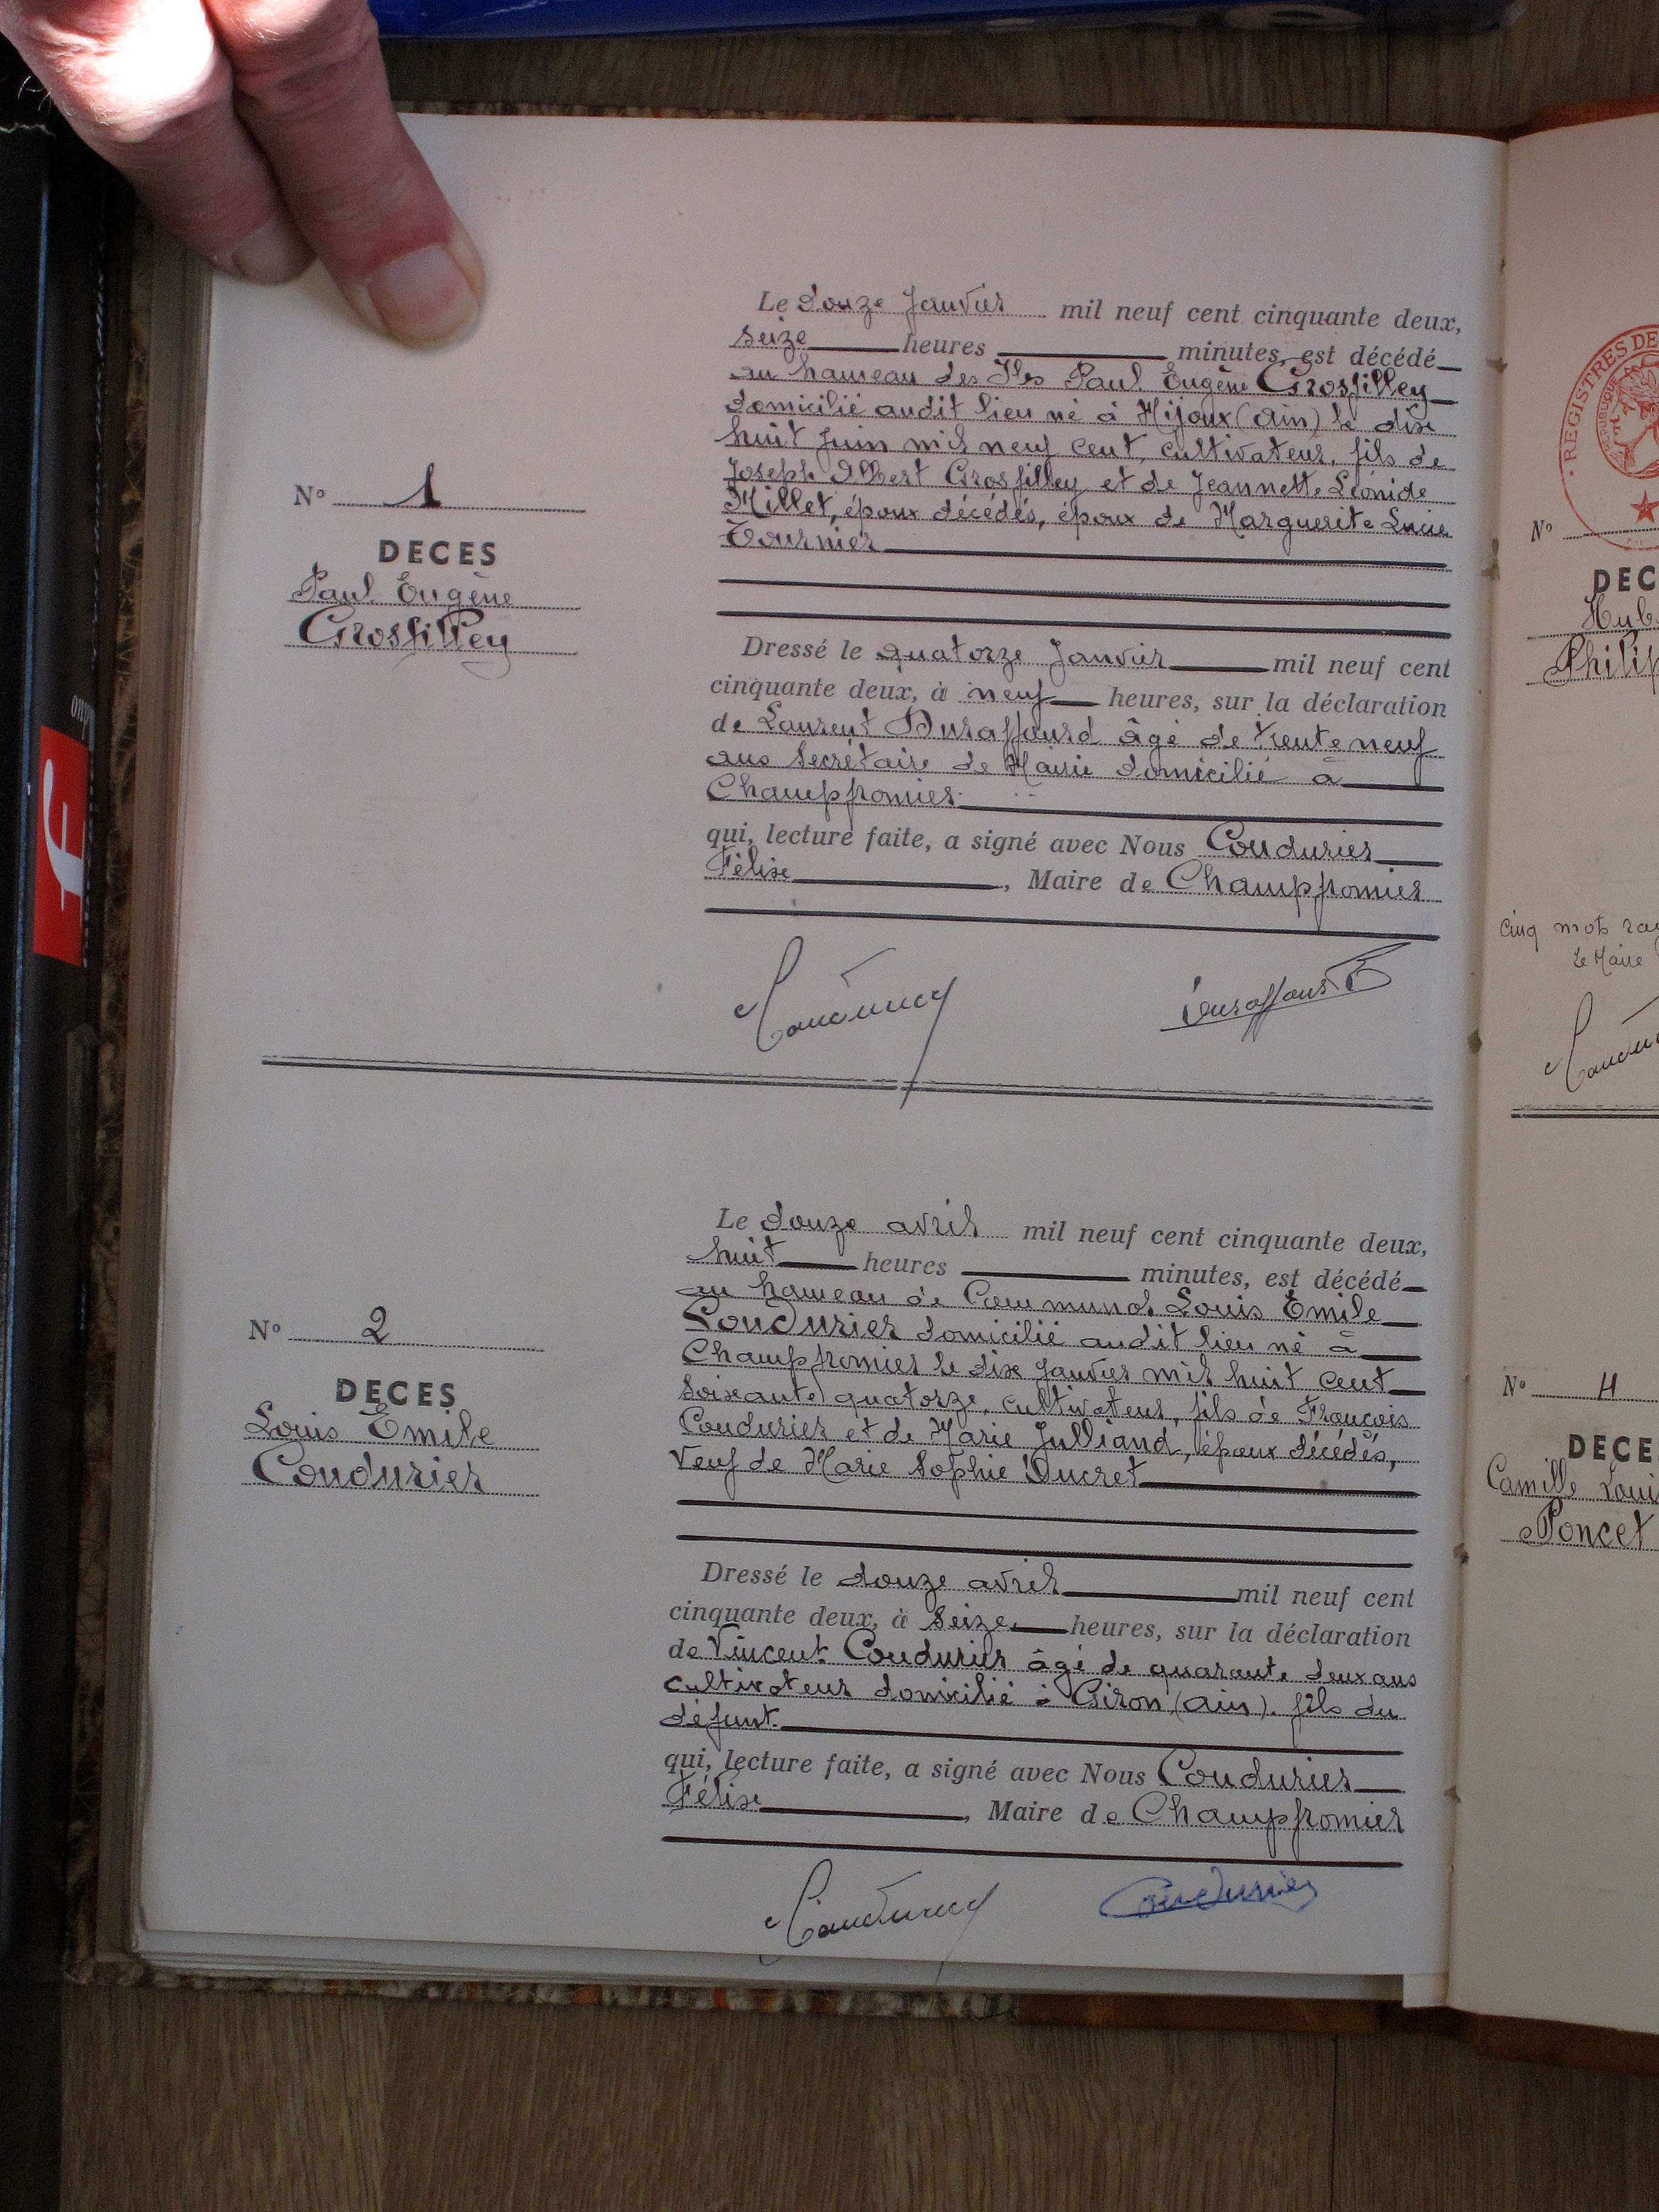 Le douze Janvier mil neuf cent cinquante deux,
seize heures minutes, est décédé
au hameau des Iles Paul Eugène Grosfilley
domicilié audit lieu né à Mijoux (Ain) le dix
huit Juin mil neuf cent, cultivateur, fils de
Joseph Albert Grosfilley et de Jeannette Léonide
Millet, époux décédés, époux de Marguerite Lucie
Tournier
N° 1
DECES
Paul Eugène
Grosfilley
Dressé le quatorze Janvier mil neuf cent
cinquante deux, à neuf heures, sur la déclaration
de Laurent Duraffourd âgé de trente neuf
ans Secrétaire de Mairie domicilié à
Champfromier
qui, lecture faite, a signé avec Nous Coudurier
Félix, Maire de Champfromier
Le douze avril mil neuf cent cinquante deux,
huit heures minutes, est décédé
au hameau de Communal Louis Émile
Coudurier domicilié audit lieu né à
Champfromier le dix Janvier mil huit cent
soixante quatorze, cultivateur, fils de François
Coudurier et de Marie Julliand, époux décédés,
Veuf de Marie Sophie Ducret
N° 2
DECES
Louis Émile
Coudurier
Dressé le douze avril mil neuf cent
cinquante deux, à seize heures, sur la déclaration
de Vincent Coudurier âgé de quarante deux ans
cultivateur domicilié à Giron (Ain). fils du
défunt.
qui, lecture faite, a signé avec Nous Coudurier
Félix, Maire de Champfromier
Coudurier
REGISTRES DE
N°
DEC
Hub
Philip
cinq mots
Le Maire
N° 4
DECE
Camille Loui
Poncet